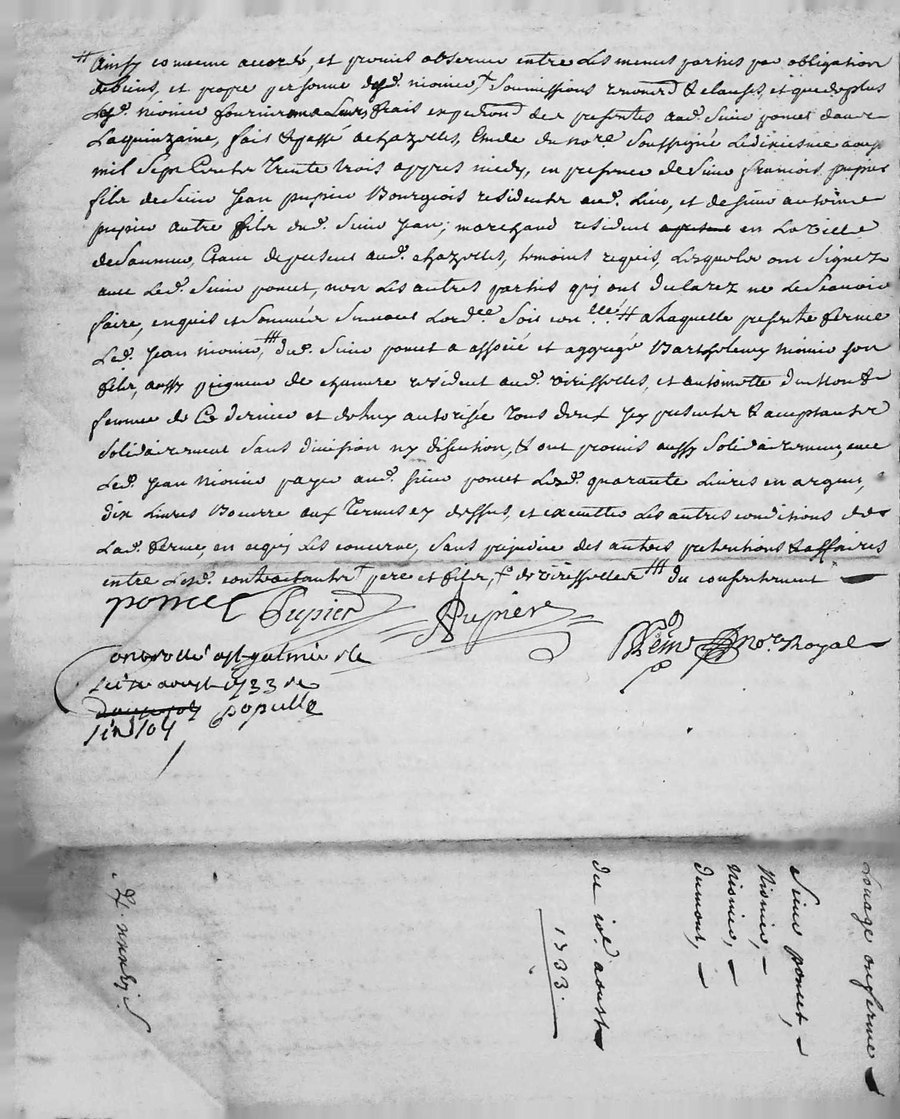 Ainsy comenne accordé, et promis observer entre Les mesmes parties par obligation
de biens, et propre personne desd. nioniert Soumissions renond & clauses, et que de plus
Led. nionier fournira a Leurs frais expedond des presentes aud. Sieur poncet dans
La quinzaine, fait & passé a chazelles, Etude du nore Soussigné Le dixiesme aoust
mil Sept Cents Trente trois appres midy, en presence de Sieur francois pupier
fils de Sieur Jean pupier Bourgeois residents aud. Lieu, et de Sieur antoine
pupier autre fils dud. Sieur Jean; marchand resident en La Ville
de Saumur, Etant de present aud. chazelles, temoins requis, Lesquels ont Signez
avec Led. Sieur poncet, non Les autres parties qui ont declarez ne Le Scavoir
faire, enquis et Sommés Suivant Lordee Soit conlléé # a Laquelle presente ferme
Led. Jean nionier, ### dud. Sieur poncet a associé et aggregé Barthelemy nionier son
fils, aussy peigneur de chanvre resident aud. virisselles, et antoinette dumond
femme de Ce dernier et de Luy autorisée tous deux Icy presents & acceptants
Solidairement Sans division ny discution, & ont promis aussy Solidairement, avec
Led. Jean nionier payer aud. sieur poncet Lesd. quarante Livres en argent,
dix Livres Beurre aux Termes cy dessus, et executter Les autres conditions de
Lad. ferme, en ce qui Les concerne, Sans prejudice des autres pretentions & affaires
entre Lesd. contractants pere et fils, de virisselles ### du consentement
poncet Pupier Apupier
nore Royal
controllé a St galmier le
seize aoust 1733 Re
populle
Louage en ferme
Sieur poncet,
Nionier,
nionier,
dumont,
du 10e. aoust
1733.